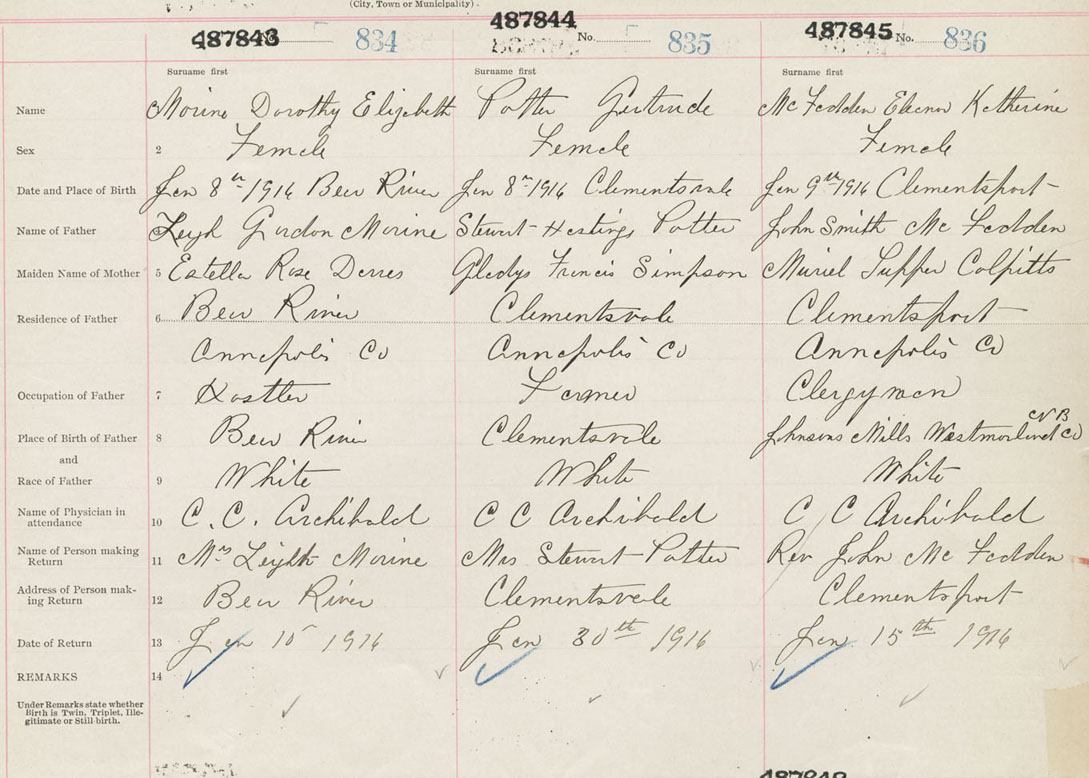 (City, Town or Municipality)
487843 834
487844 No. 835
487845 No. 836
Surname first Surname first Surname first
Name Morine Dorothy Elizabeth Potter Gertrude McFadden Eleanor Katherine
Sex 2 Female Female Female
Date and Place of Birth Jan 8th 1916 Bear River Jan 8th 1916 Clementsvale Jan 9th 1916 Clementsport
Name of Father Leigh Gordon Morine Stewart Hastings Potter John Smith McFadden
Maiden Name of Mother 5 Estella Rose Gladys Francis Simpson Muriel Tupper Colpitts
Residence of Father 6 Bear River Clementsvale Clementsport
Annapolis Co Annapolis Co Annapolis Co
Occupation of Father 7 Hostler Farmer Clergyman
Place of Birth of Father 8 Bear River Clementsvale Johnsons Mills Westmorland Co N B
and
Race of Father 9 White White White
Name of Physician in attendance 10 C. C. Archibald C C Archibald C C Archibald
Name of Person making Return 11 Mrs Leigh Morine Mrs Stewart Potter Rev John McFadden
Address of Person making Return 12 Bear River Clementsvale Clementsport
Date of Return 13 Jan 10 1916 Jan 30th 1916 Jan 15th 1916
REMARKS 14
Under Remarks state whether
Birth is Twin, Triplet, Ille-
gitimate or Still-birth.